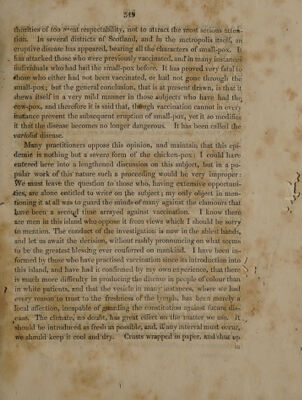 349
thorities of too great respectability, not to attract the most serious atten-
tion. In several districts of Scotland, and in the metropolis itself, an
eruptive disease has appeared, bearing all the characters of small-pox. It
has attacked those who were previously vaccinated, and in many instances
individuals who had had the small-pox before. It has proved very fatal to
those who either had not been vaccinated, or had not gone through the
small-pox; but the general conclusion, that is at present drawn, is that it
shews itself in a very mild manner in those subjects who have had the
cow-pox, and therefore it is said that, though vaccination cannot in every
instance prevent the subsequent eruption of small-pox, yet it so modifies
it that the disease becomes no longer dangerous. It has been called the
varioloid disease.
Many practitioners oppose this opinion, and maintain that this epi-
demic is nothing but a severe form of the chicken-pox: I could have
entered here into a lengthened discussion on this subject, but in a po-
pular work of this nature such a proceeding would be very improper:
We must leave the question to those who, having extensive opportuni-
ties, are alone entitled to write on the subject; my only object in men-
tioning it at all was to guard the minds of many against the clamours that
have been a second time arrayed against vaccination. I know there
are men in this island who oppose it from views which I should be sorry
to mention. The conduct of the investigation is now in the ablest hands,
and let us await the decision, without rashly pronouncing on what seems
to be the greatest blessing ever conferred on mankind. I have been in-
formed by those who have practised vaccination since its introduction into
this island, and have had it confirmed by my own experience, that there
is much more difficulty in producing the disease in people of colour than
in white patients, and that the vesicle in many instances, where we had
every reason to trust to the freshness of the lymph, has been merely a
local affection, incapable of guarding the constitution against future dis-
ease. The climate, no doubt, has great effect on the matter we use. It
should be introduced as fresh as possible, and, if any interval must occur,
we should keep it cool and dry. Crusts wrapped in paper, and shut up
in